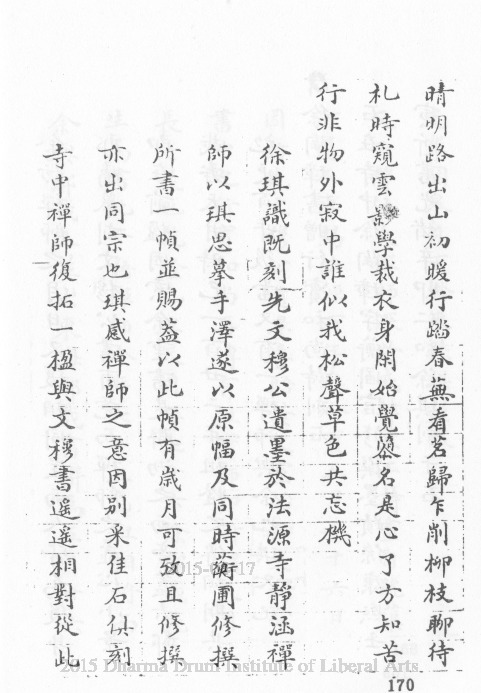 晴明路出山初暖行踏春蕪看茗歸乍削柳枝聊待
札時窺雲影學裁衣身閑始覺隳名是心了方知苦
行非物外寂中誰似我松聲草色共忘機
徐琪識既刻先文穆公遺墨於法源寺靜涵禪
師以琪思摹手澤遂以原幅及同時蘅圃修撰
所書一幀並賜葢以此幀有歲月可攷且修撰
亦出同宗也琪感禪師之意因別采佳石付刻
寺中禪師復拓一楹與文穆書遥遥相對從此
2015-17
2015 Dharma Drum Institute of Liberal Arts
170